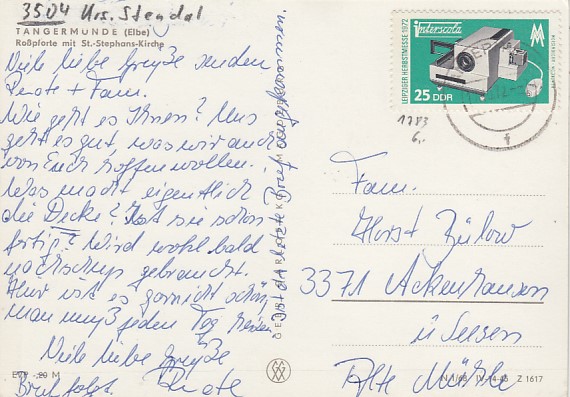 3504 Krs. Stendal
TANGERMÜNDE (Elbe)
Roßpforte mit St.-Stephans-Kirche
Viele liebe Grüße senden
Renate + Fam.
Wie geht es Ihnen? Uns
geht es gut, was wir auch
von Euch hoffen wollen.
Was macht eigentlich
die Decke? Ist sie schon
fertig? Wird wohl bald
gebraucht.
Hier ist es garnicht schön,
man muß jeden Tag
Viele liebe Grüße
Renate
Brief folgt.
EVP -,20 M
Ist der letzte Brief angekommen.
LEIPZIGER HERBSTMESSE 1972
interscola
25 DDR
1783
6,-
Fam.
Horst Bülow
3371 Ackenhausen
ü Seesen
Alte Mühle
N 1/68 IV-14-45 Z 1617